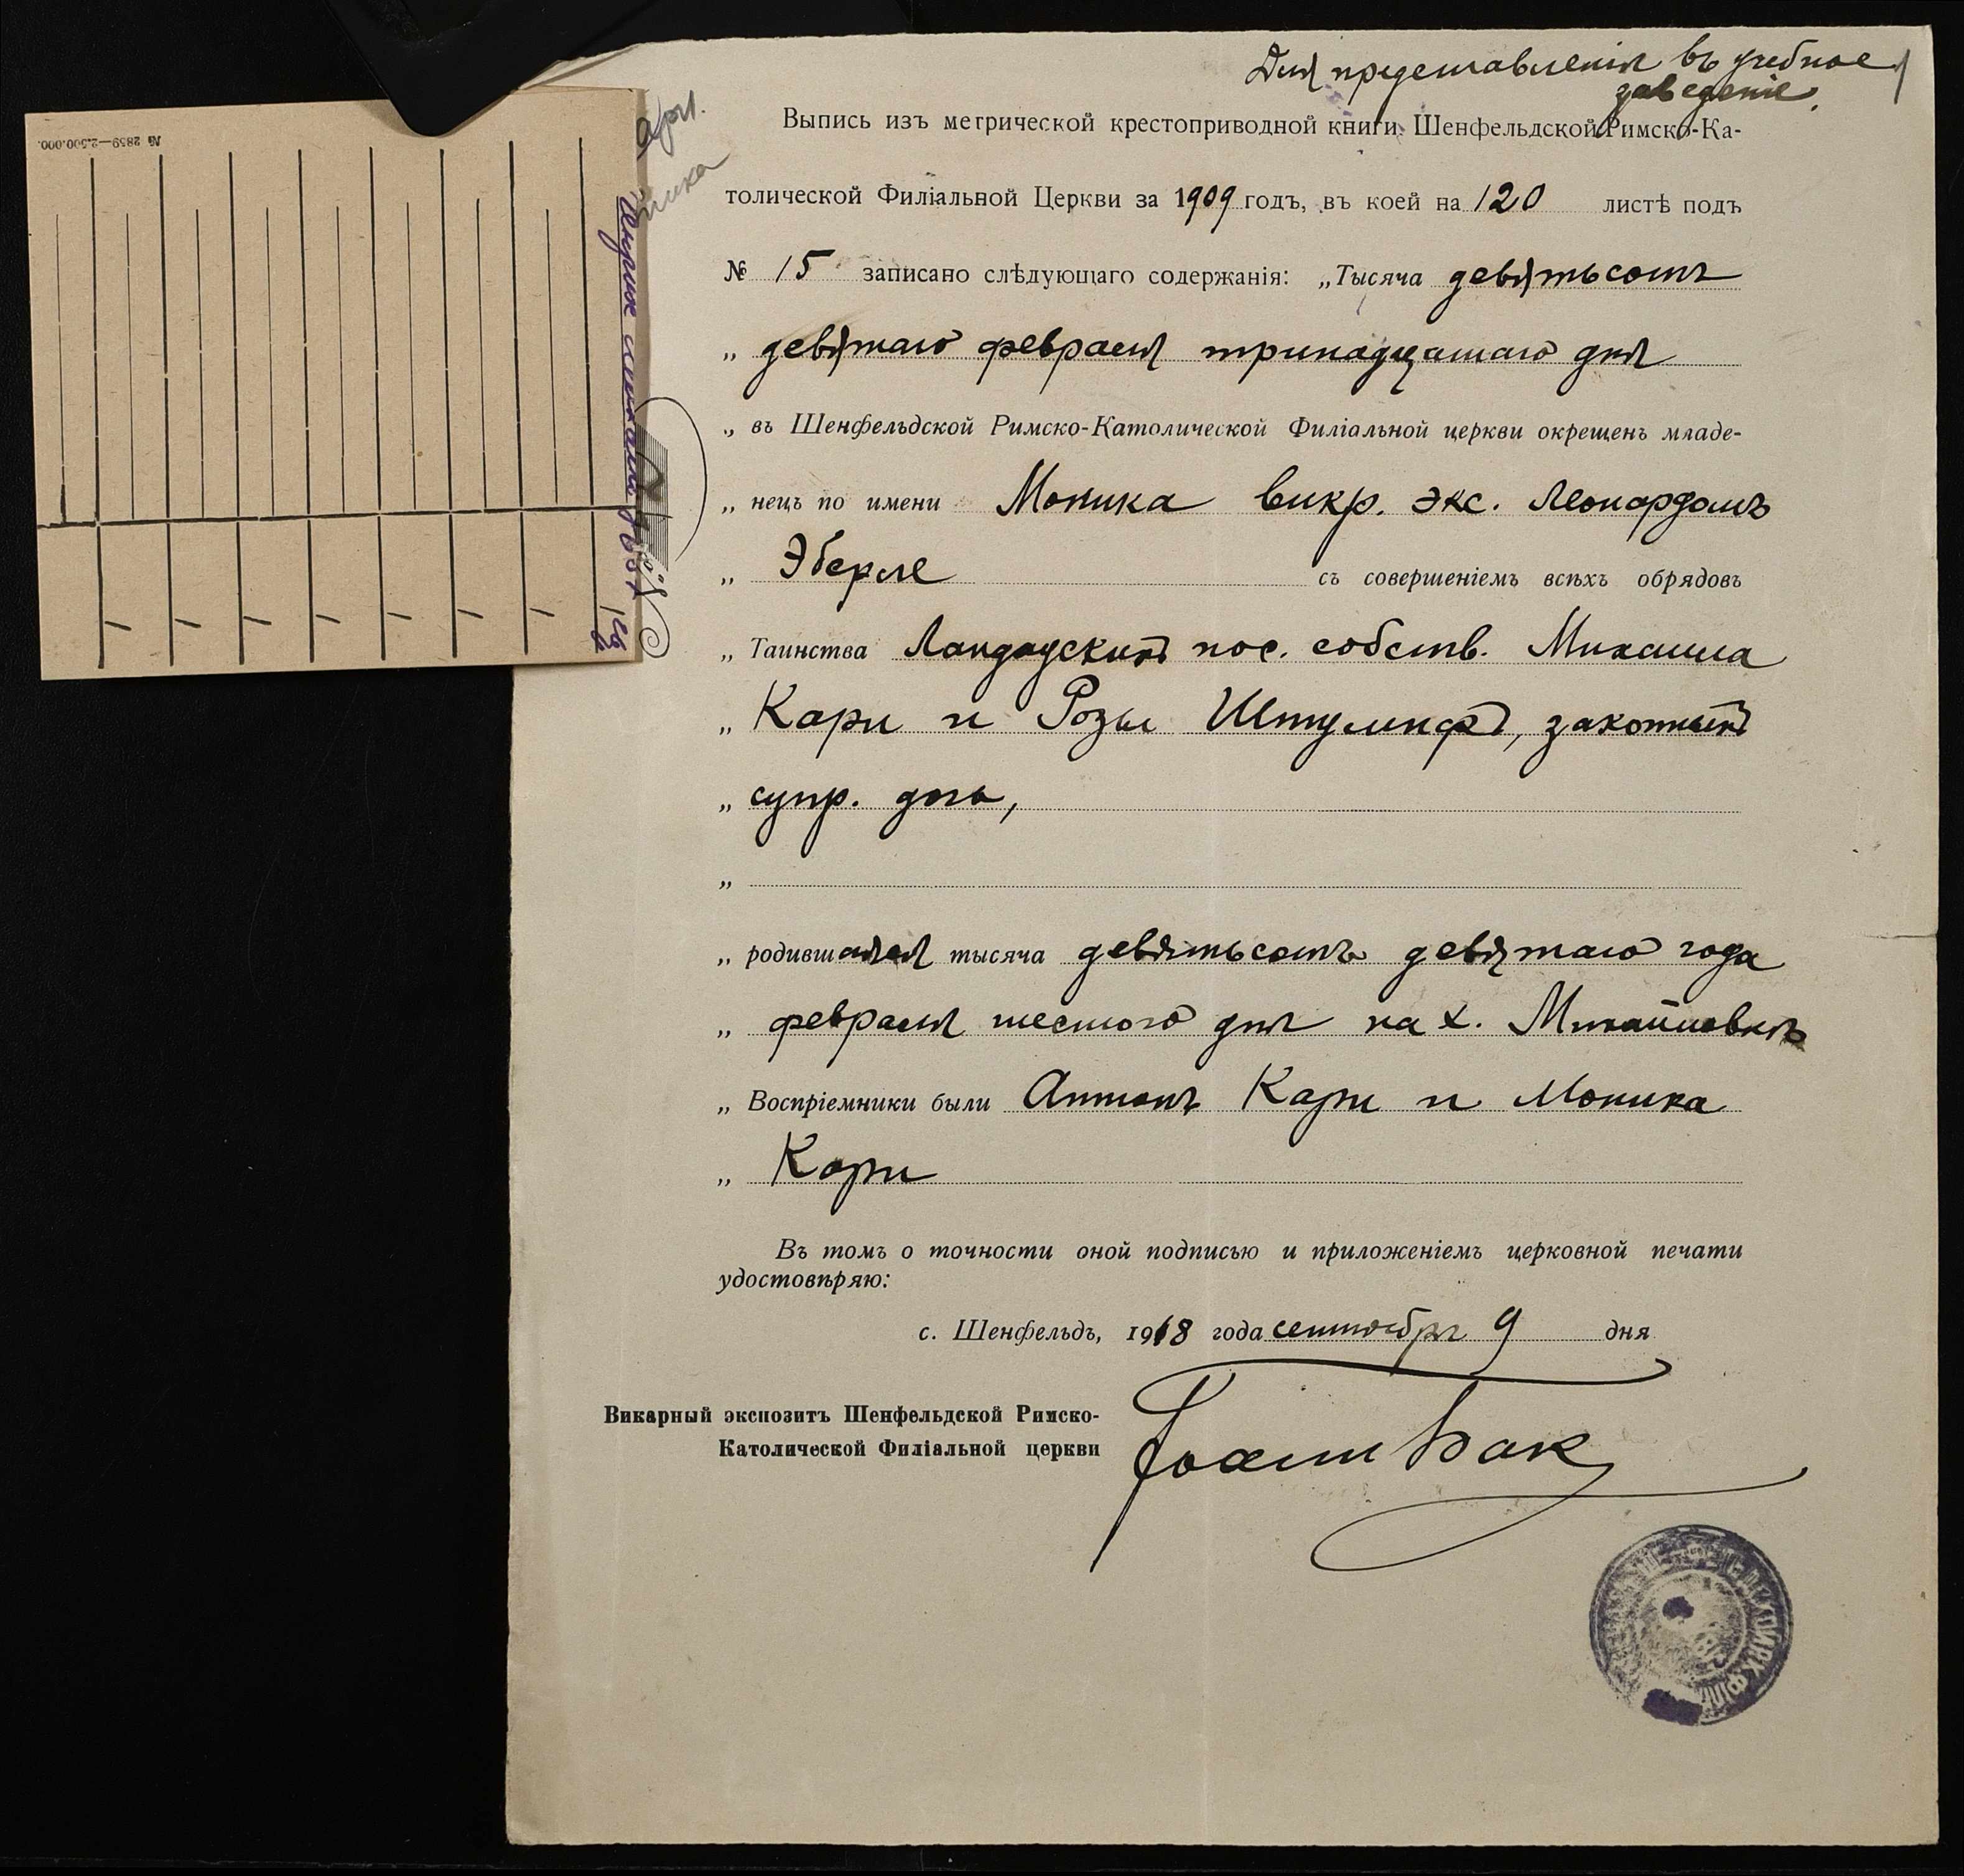 Для представленія въ учебное
заведеніе.
Выпись изъ метрической крестоприводной книги Шенфельдской Римско-Ка-
толической Филіальной Церкви за 1909 годъ, въ коей на 120 листѣ подъ
№ 15 записано слѣдующаго содержанія: „Тысяча девятьсотъ
„ девятаго февраля тринадцатаго дня
„ въ Шенфельдской Римско-Католической Филіальной церкви окрещенъ младе-
„ нецъ по имени Моника викр. экс. Леонардомъ
„ Эберле съ совершеніемъ всѣхъ обрядовъ
„ Таинства Ландауский пос. собств. Михаила
„ Кари и Розы Штумпфъ, законный
„ супр. дочь,
„
„ родившаяся тысяча девятьсотъ девятаго года
„ февраля шестого дня на х. Михайловкѣ
„ Воспріемники были Антонъ Кари и Моника
„ Кари
Въ томъ о точности оной подписью и приложеніемъ церковной печати
удостовѣряю:
с. Шенфельдъ, 1918 года сентября 9 дня
Викарный экспозитъ Шенфельдской Римско-
Католической Филіальной церкви
Іоаннъ Бак
№ 2859—2.500.000.